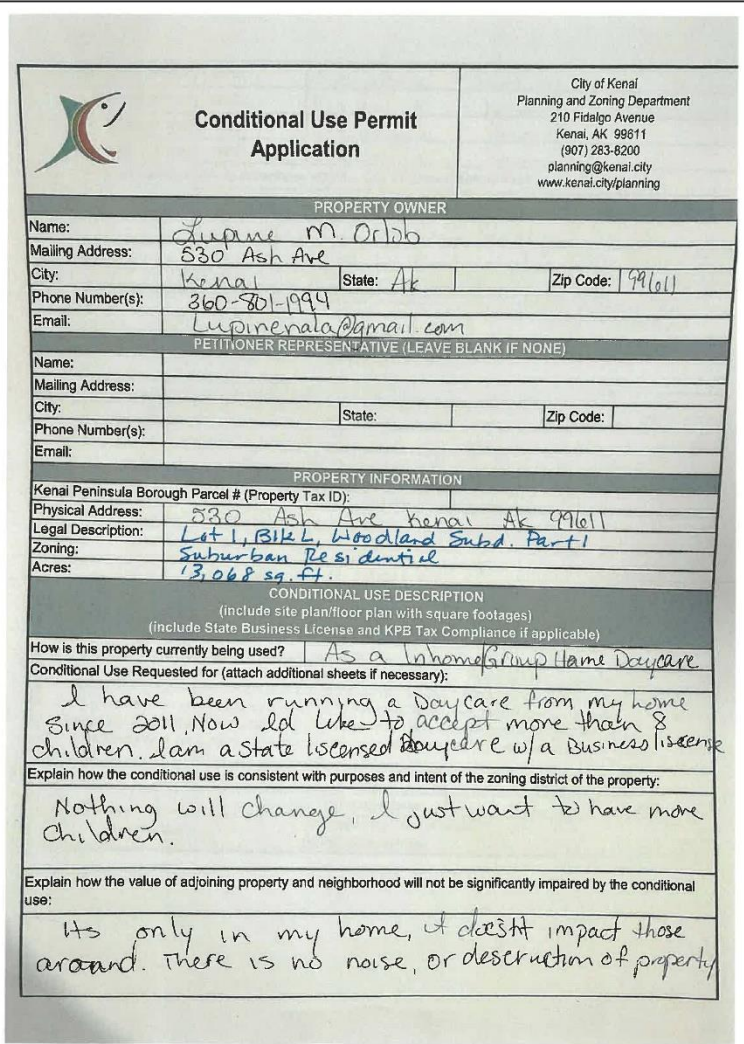 Conditional Use Permit
Application
City of Kenai
Planning and Zoning Department
210 Fidalgo Avenue
Kenai, AK 99611
(907) 283-8200
planning@kenai.city
www.kenai.city/planning
PROPERTY OWNER
Name: Lupine M. Orlob
Mailing Address: 530 Ash Ave
City: Kenai State: Ak Zip Code: 99611
Phone Number(s): 360-801-1994
Email: Lupinenala@gmail.com
PETITIONER REPRESENTATIVE (LEAVE BLANK IF NONE)
Name:
Mailing Address:
City: State: Zip Code:
Phone Number(s):
Email:
PROPERTY INFORMATION
Kenai Peninsula Borough Parcel # (Property Tax ID):
Physical Address: 530 Ash Ave Kenai Ak 99611
Legal Description: Lot 1, Blk L, Woodland Subd. Part 1
Zoning: Suburban Residential
Acres: 13,068 sq. ft.
CONDITIONAL USE DESCRIPTION
(include site plan/floor plan with square footages)
(include State Business License and KPB Tax Compliance if applicable)
How is this property currently being used? As a Inhome/Group Home Daycare
Conditional Use Requested for (attach additional sheets if necessary):
I have been running a Daycare from my home
Since 2011, Now Id like to accept more than 8
children. I am a State liscensed Daycare w/a Business liscense
Explain how the conditional use is consistent with purposes and intent of the zoning district of the property:
Nothing will change, I just want to have more
Children.
Explain how the value of adjoining property and neighborhood will not be significantly impaired by the conditional
use:
Its only in my home, it doesnt impact those
around. There is no noise, or descruction of property